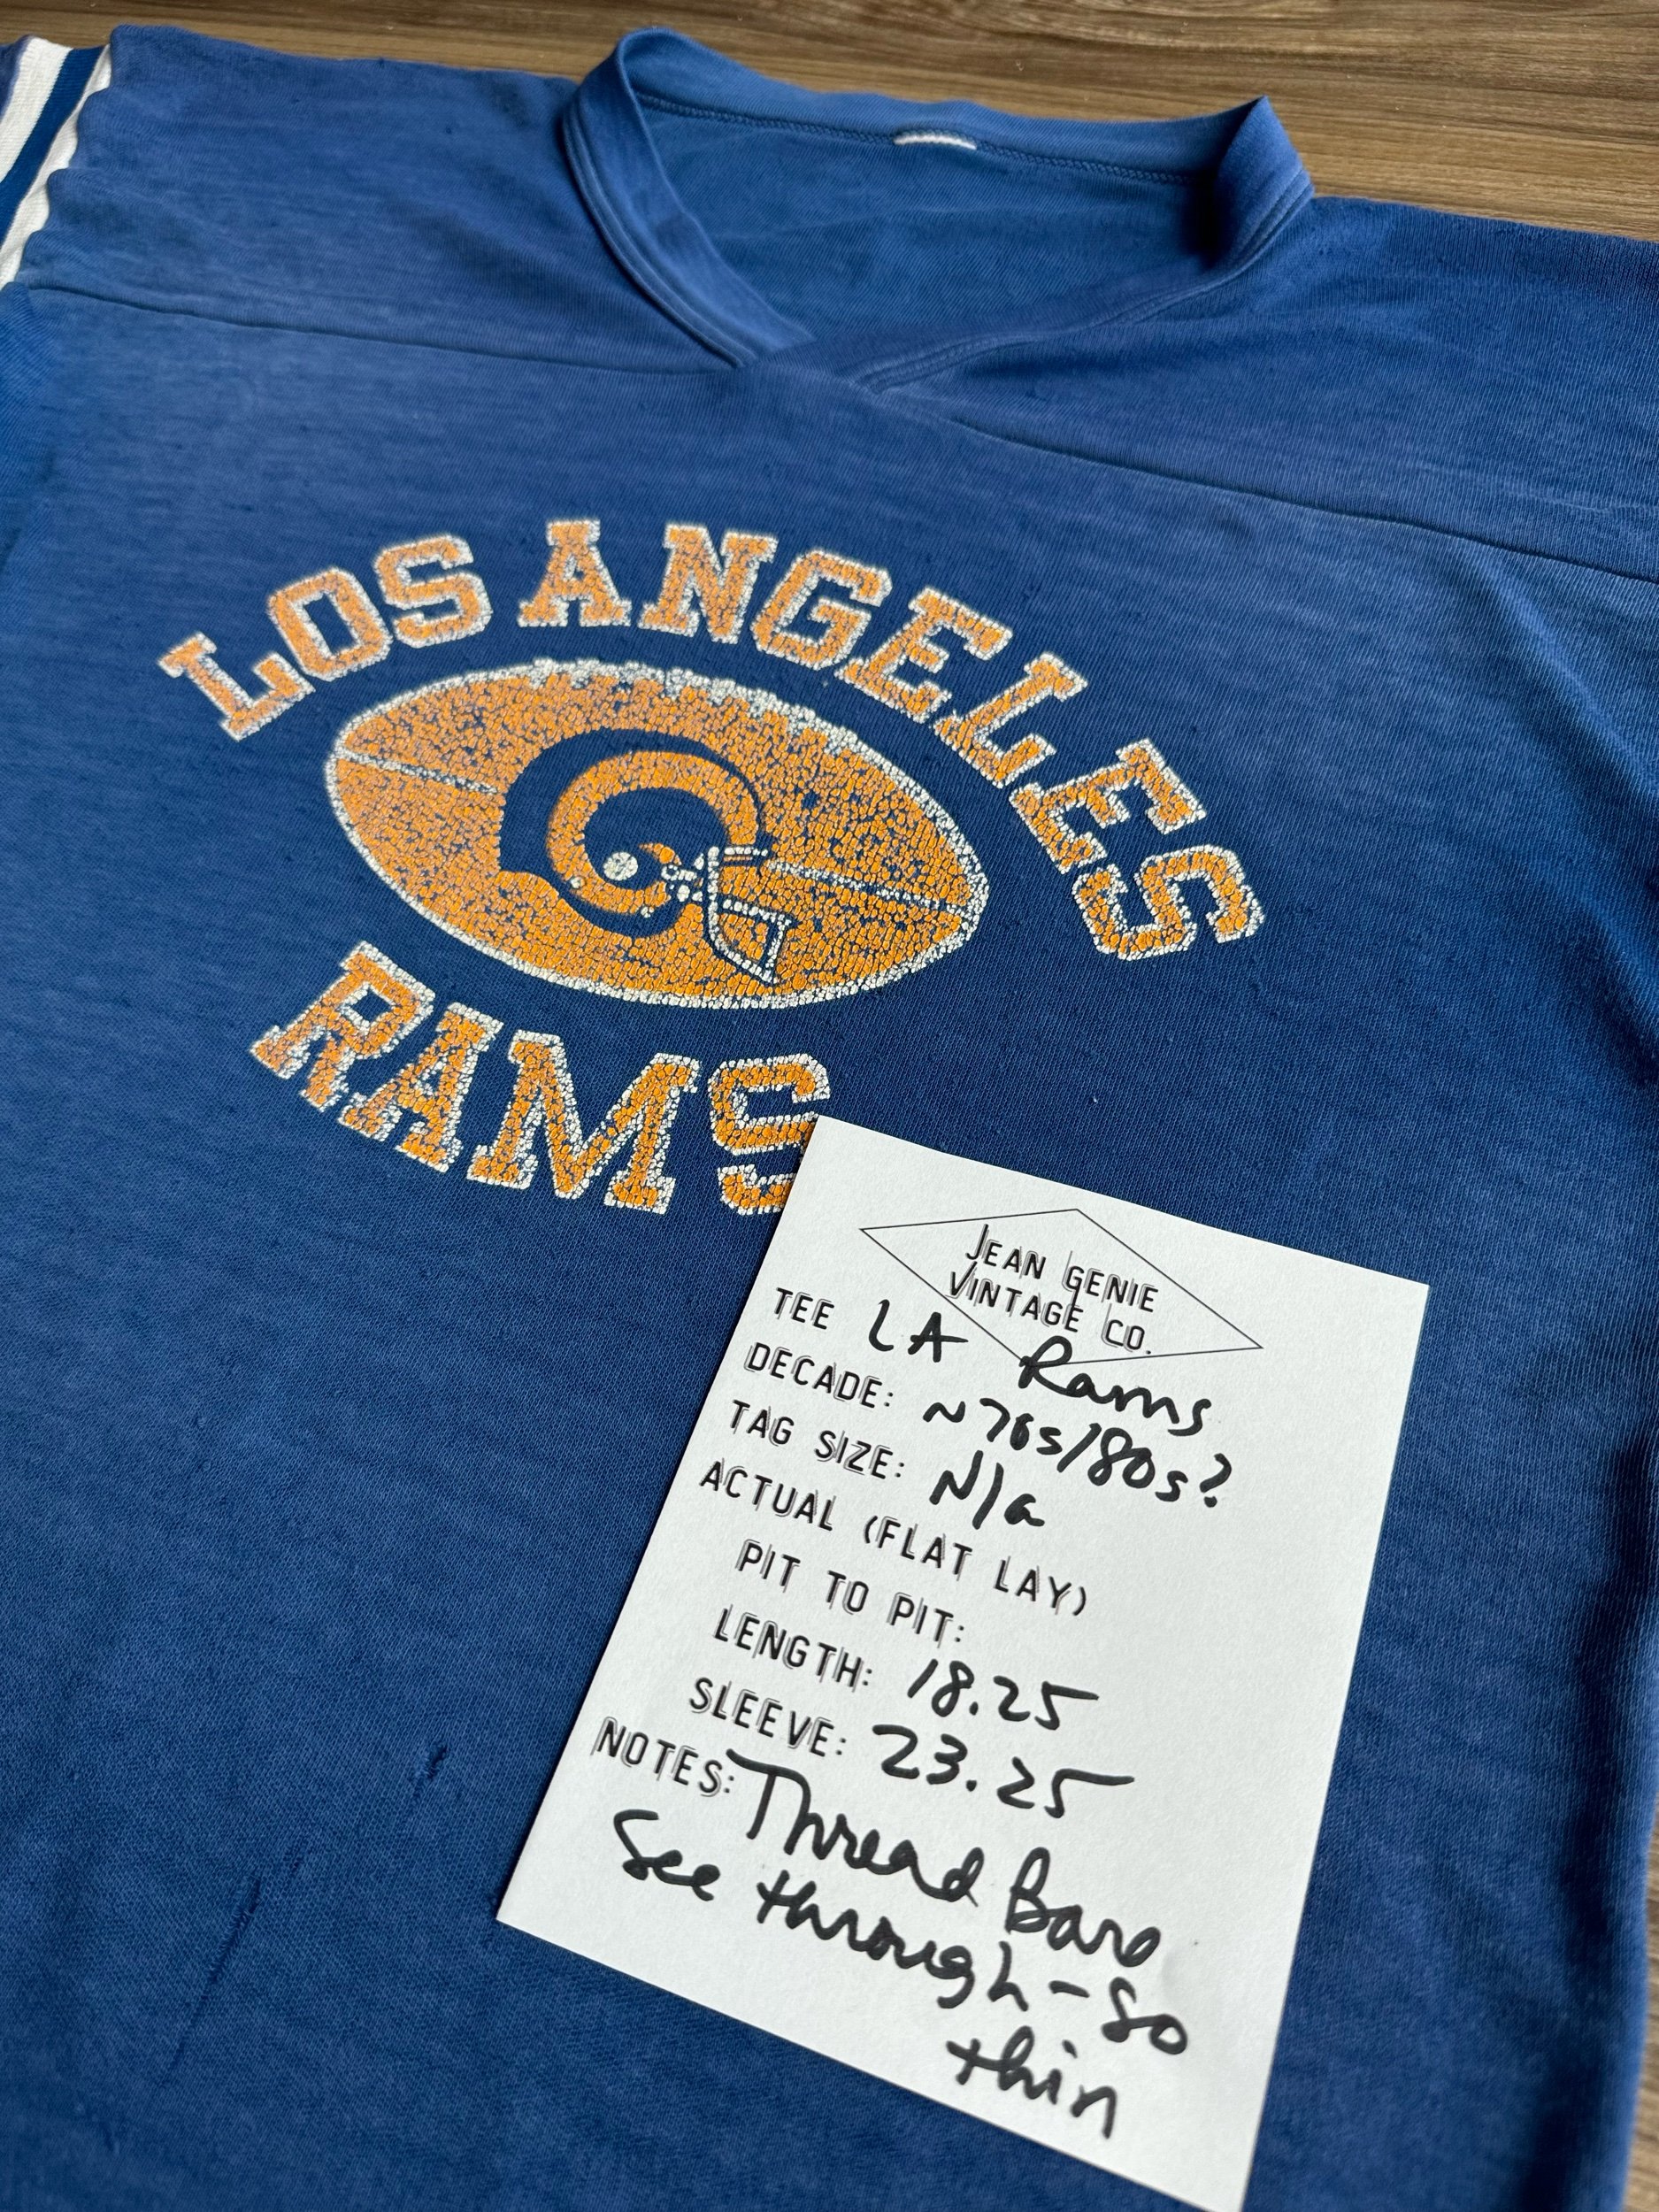 LOS ANGELES
RAMS
JEAN GENIE
VINTAGE CO.
TEE LA Rams
DECADE: ~70s/80s?
TAG SIZE: N/a
ACTUAL (FLAT LAY)
PIT TO PIT:
LENGTH: 18.25
SLEEVE: 23.25
NOTES: Thread Bare
See through - so
thin